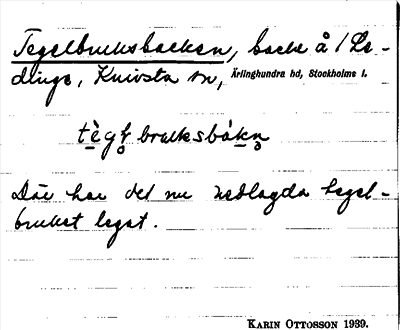 Tegelbruksbacken, backe å /Le-
dinge, Knivsta sn, Ärlinghundra hd, Stockholms l.
tègl̥bruksbákn̥
Där har det nu nedlagda tegel-
bruket legat.
KARIN OTTOSSON 1939.